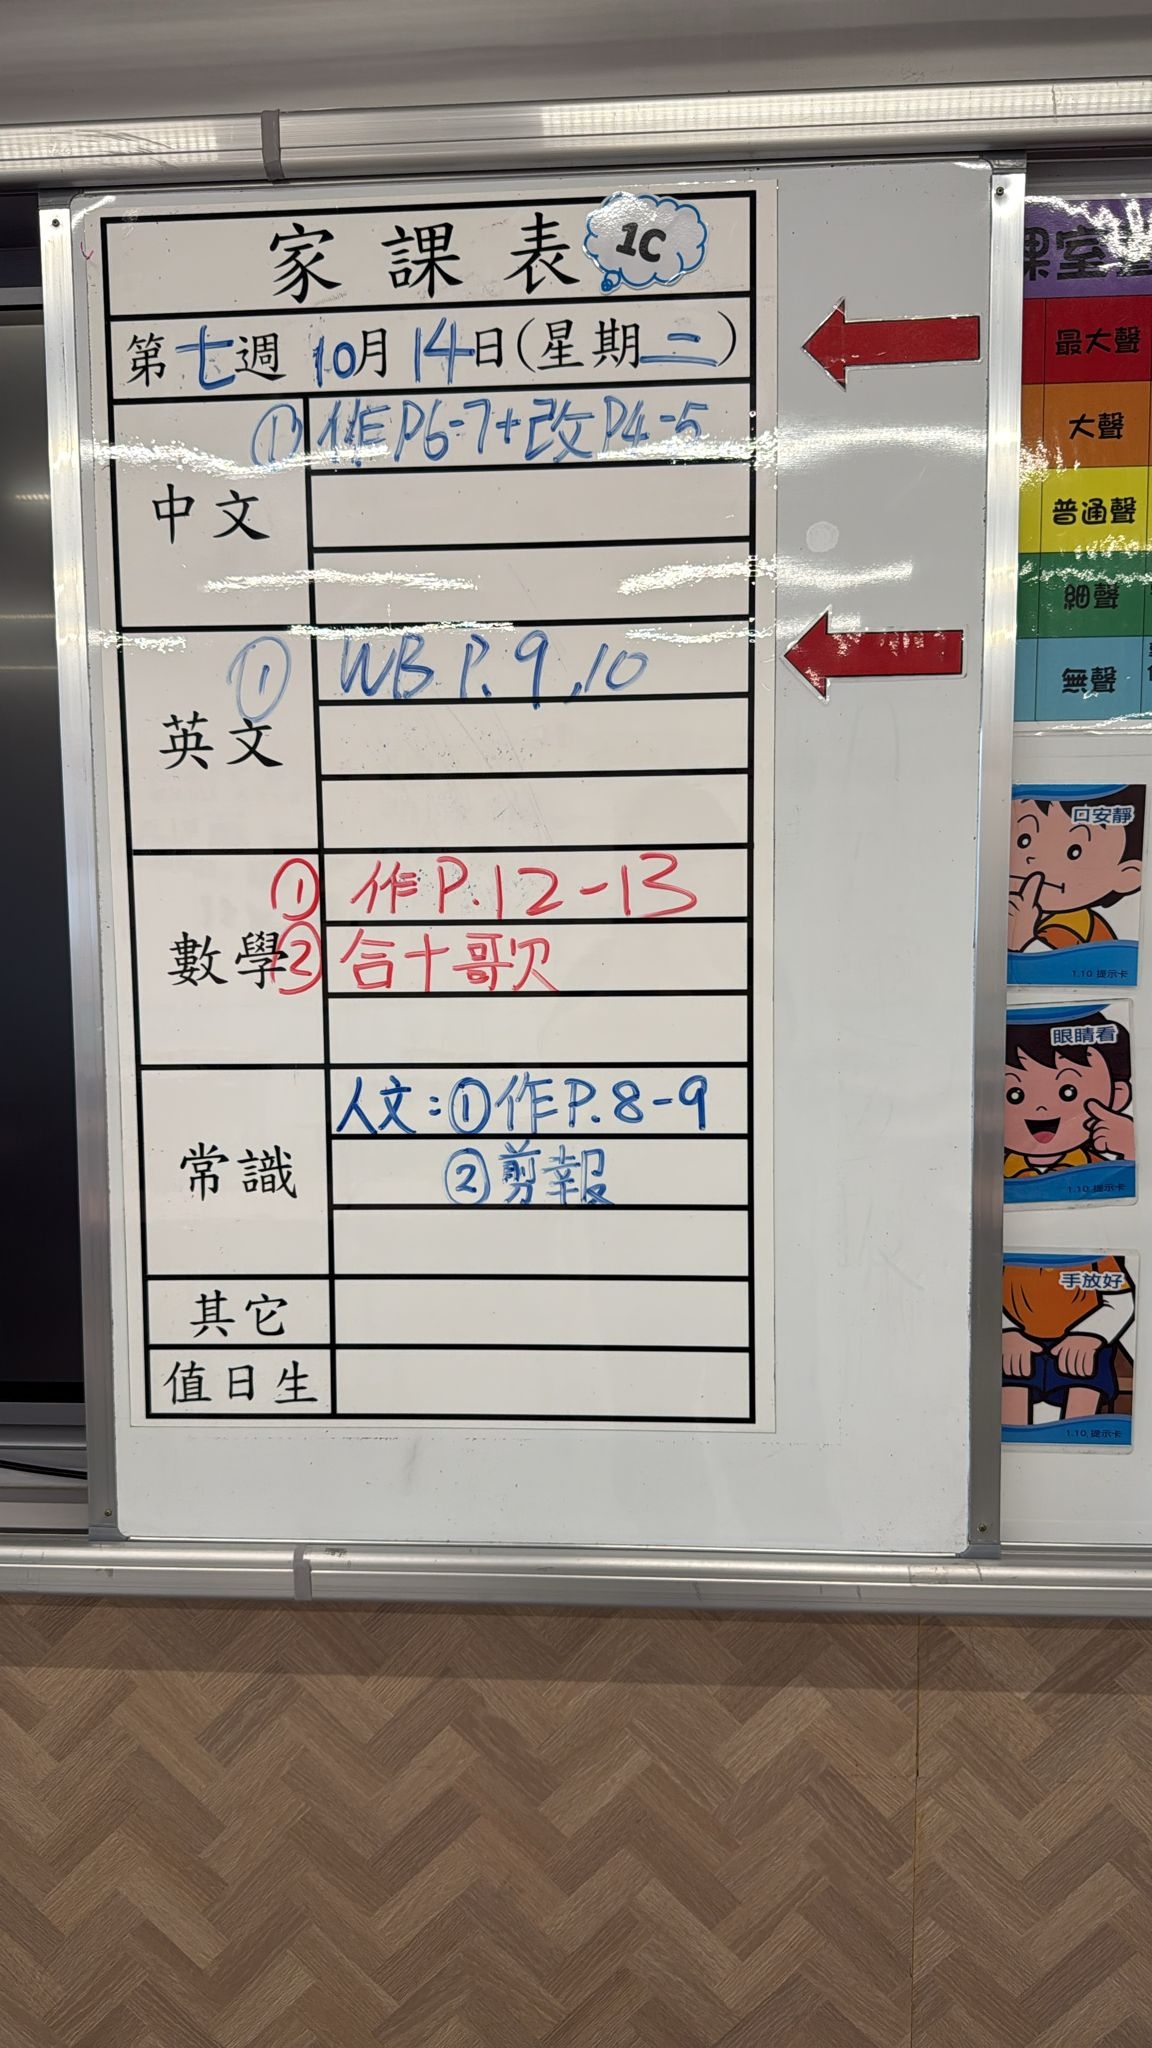 家課表 1C
第七週 10月14日(星期二)
中文
① 作P6-7+改P4-5
英文
① WB P.9,10
數學
① 作P.12-13
② 合十歌
常識
人文:①作P.8-9
②剪報
其它
值日生
課室
最大聲
大聲
普通聲
細聲
無聲
口安靜
1.10 提示卡
眼睛看
1.10 提示卡
手放好
1.10 提示卡